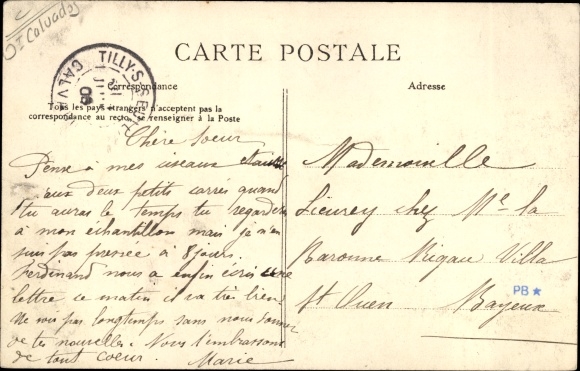 Ct Calvados
CARTE POSTALE
TILLY-S-SEULLES
CALVADOS
09
Correspondance
Adresse
Tous les pays étrangers n'acceptent pas la
correspondance au recto, se renseigner à la Poste
Chère Soeur
Pense à mes ciseaux
aux deux petits carrés quand
tu auras le temps tu regarderas
à mon échantillon mais je n'en
suis pas pressée à 8 jours.
Ferdinand nous a enfin écrit une
lettre ce matin il va très bien
Ne sois pas longtemps sans nous donner
de tes nouvelles. Nous t'embrassons
de tout coeur. Marie
Mademoiselle
Lieurey chez Me la
Baronne Rigau Villa
St Ouen Bayeux
PB★